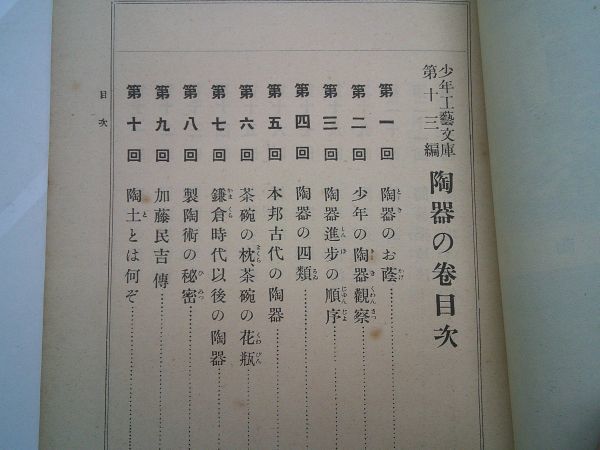 少年工藝文庫第十三編 陶器の卷目次
第一回 陶器のお蔭
第二回 少年の陶器觀察
第三回 陶器進步の順序
第四回 陶器の四類
第五回 本邦古代の陶器
第六回 茶碗の枕茶碗の花瓶
第七回 鎌倉時代以後の陶器
第八回 製陶術の秘密
第九回 加藤民吉傳
第十回 陶土とは何ぞ
目次